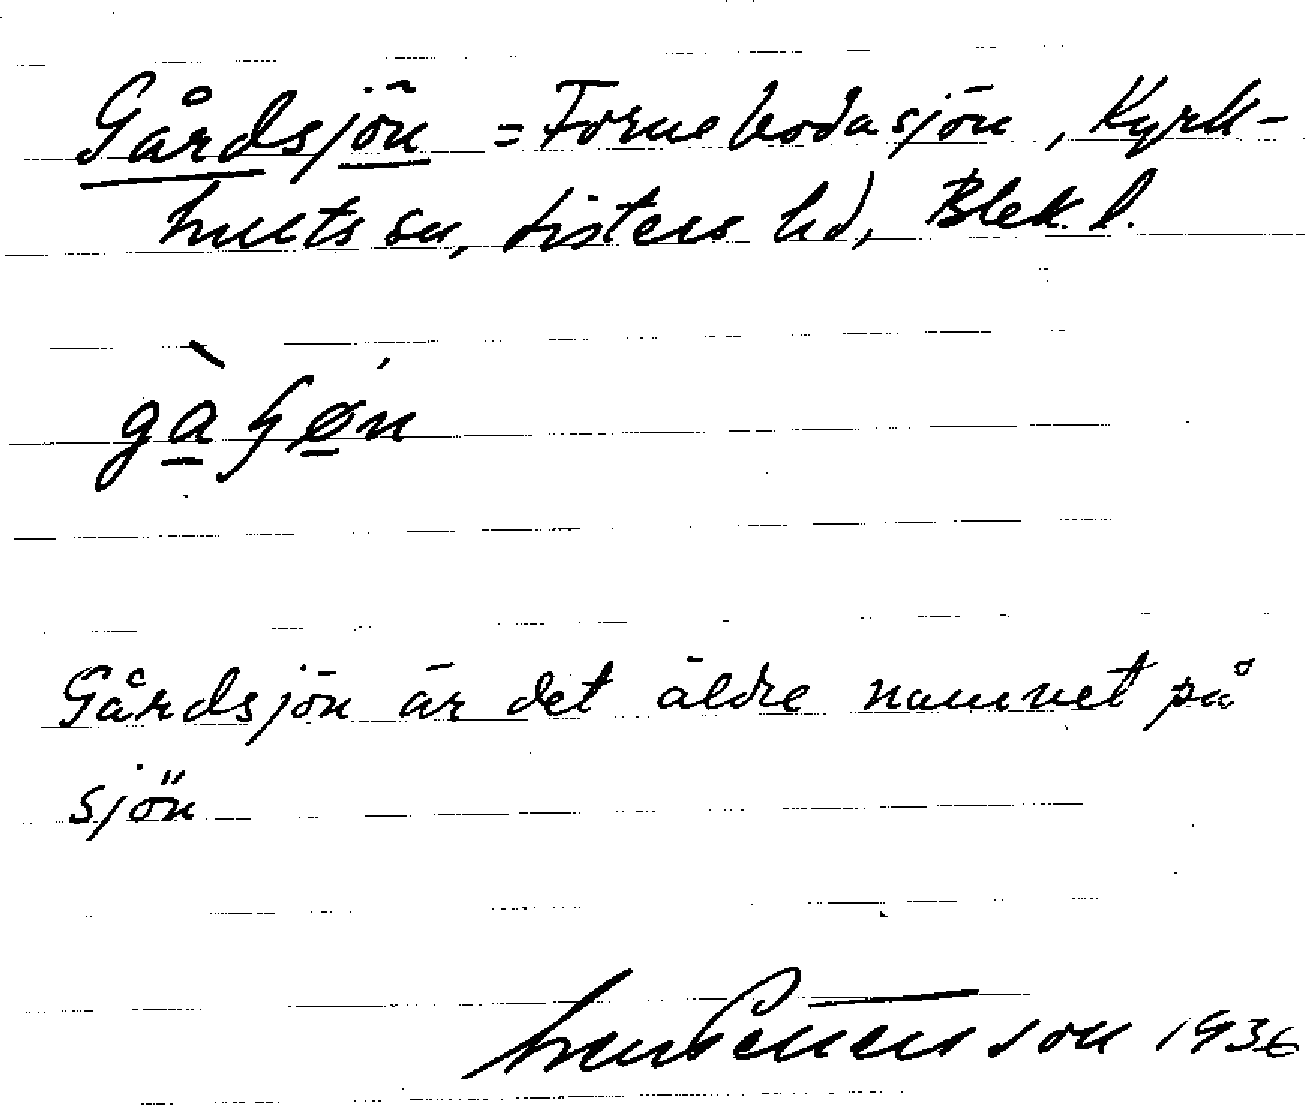 Gårdsjön = Fornebodasjön, Kyrk-
hults sn, Listers hd, Blek. l.
Gårdsjön är det äldre namnet på
sjön
Sven Pettersson 1936